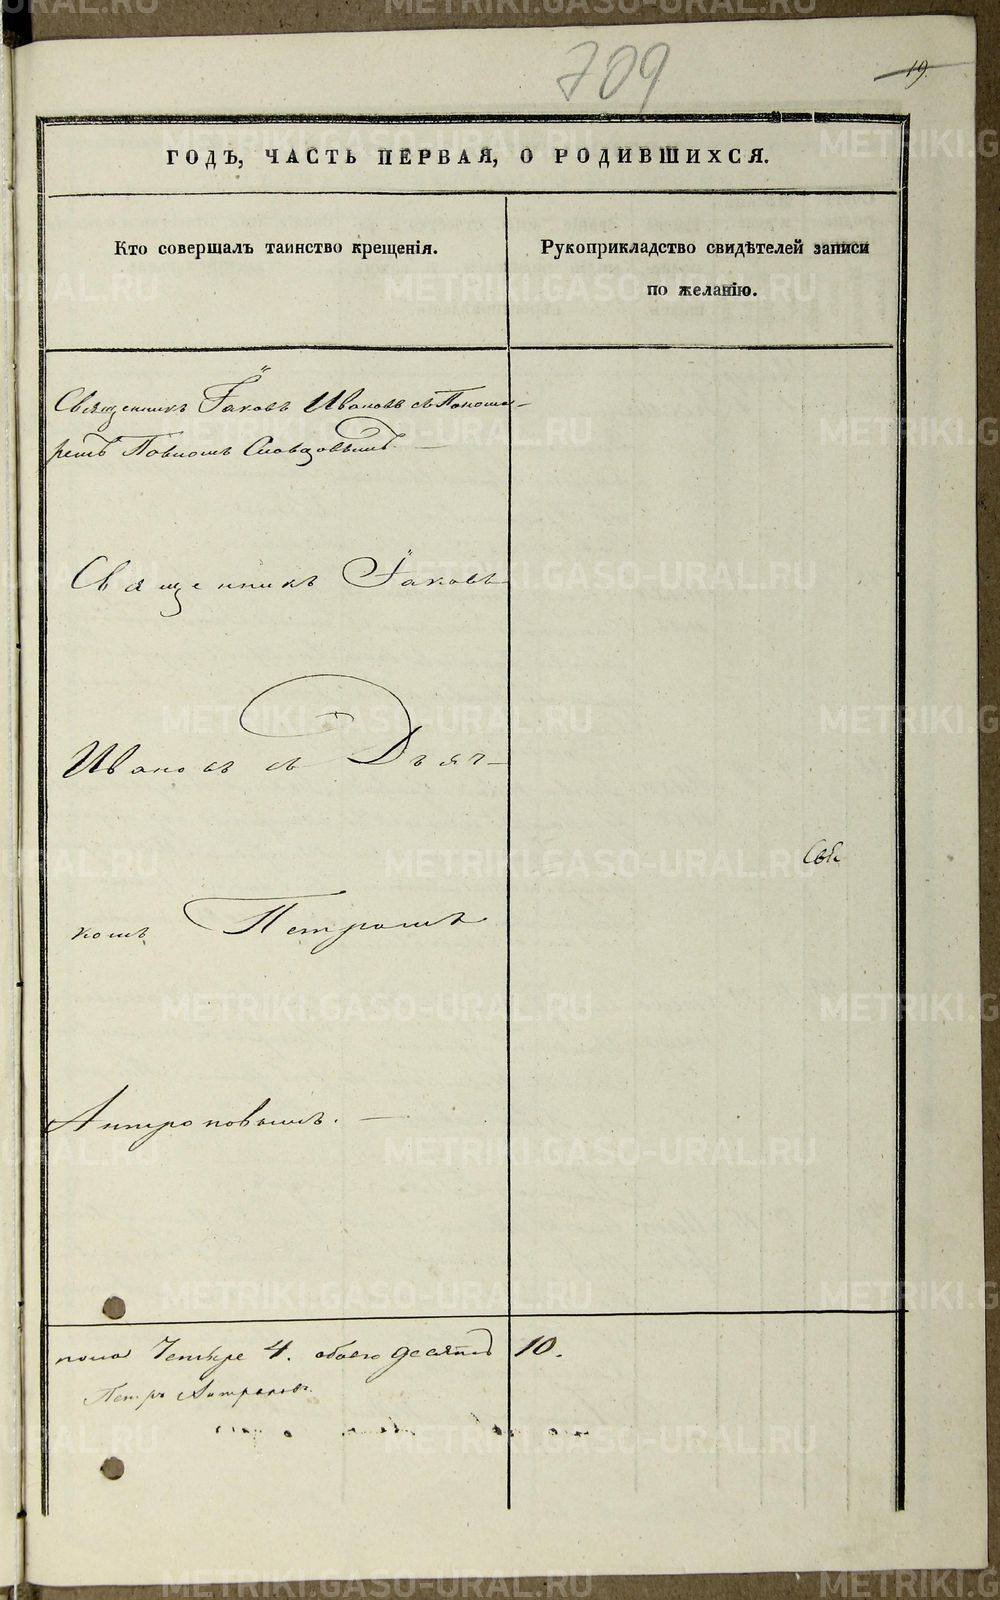 709
19.
ГОДЪ, ЧАСТЬ ПЕРВАЯ, О РОДИВШИХСЯ.
Кто совершалъ таинство крещенія.
Рукоприкладство свидѣтелей записи
по желанію.
Священникъ Іаковъ Ивановъ съ Понома-
ремъ Павломъ Словцовымъ. —
Священникъ Іаковъ
Ивановъ съ Дьяч-
комъ Петромъ
Антроповымъ. —
пола Четыре 4. обоего десять 10.
Петръ Антроповъ.
METRIKI.GASO-URAL.RU